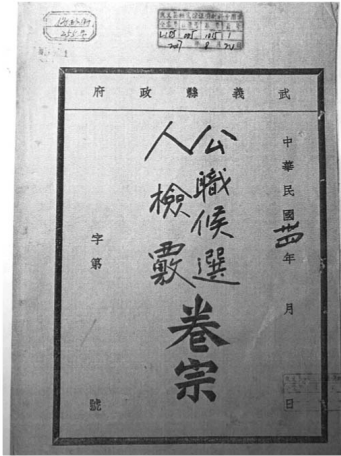 武義縣政府
中華民國卅四年 月 日
公職候選
人檢覈
卷宗
字第 號